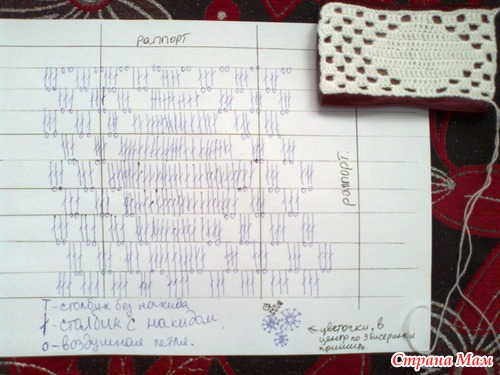 раппорт
раппорт.
Т - столбик без накида
† - столбик с накидом.
о - воздушная петля.
←цветочки, в
центр по 3 бисерины
пришить
Страна Мам